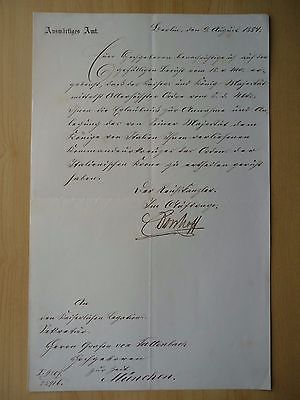 Auswärtiges Amt.
Berlin, den 9 August 1884.
Euer Hochgeboren benachrichtige ich auf den
gefälligen Bericht vom 18 v. Mts. er-
gebenst, daß des Kaisers und Königs Majestät
mittelst Allerhöchster Ordre vom
Ihnen die Erlaubniß zur Annahme und An-
legung des von Seiner Majestät dem
Könige von Italien Ihnen verliehenen
Kommandeurkreuzes des Orden der
Italienischen Krone zu ertheilen geruht
haben.
Der Reichskanzler
Im Auftrage
An
den Kaiserlichen Legations-
Sekretär
Herrn Grafen von Tattenbach
Hochgeboren
zur Zeit
München.